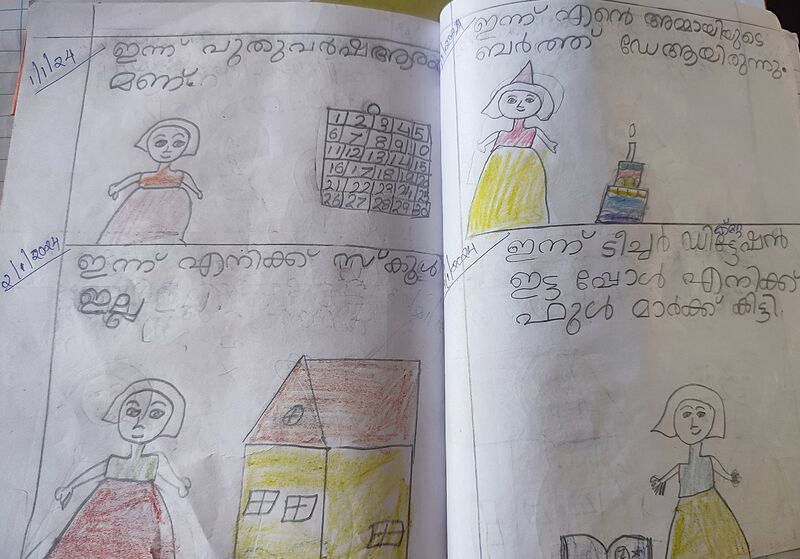 1/1/24
ഇന്ന് പുതുവർഷആരം
മണ്.
1 2 3 4 5
6 7 8 9 10
11 12 13 14 15
16 17 18
21 22 23 24 25
26 27 28 29 30
2/1/2024
ഇന്ന് എനിക്ക് സ്കൂൾ
ഇല്ല
ഇന്ന് എന്റെ അമ്മായിയുടെ
ബർത്ത് ഡേആയിരുന്നു.
ഇന്ന് ടീച്ചർ ഡിക്ടേഷൻ
ഇട്ടപ്പോൾ എനിക്ക്
ഫുൾ മാർക്ക് കിട്ടി.